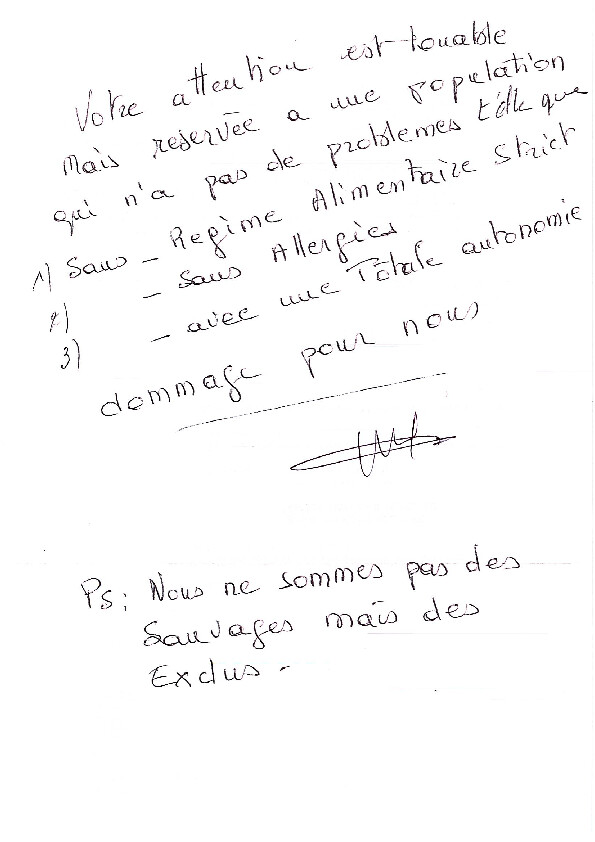 Votre attention est louable
Mais reservée a une population
qui n'a pas de problemes telle que
1) Sans - Regime Alimentaire Strict
2) - Sans Allergies
3) - avec une Totale autonomie
dommage pour nous
Ps: Nous ne sommes pas des
Sauvages mais des
Exclus -